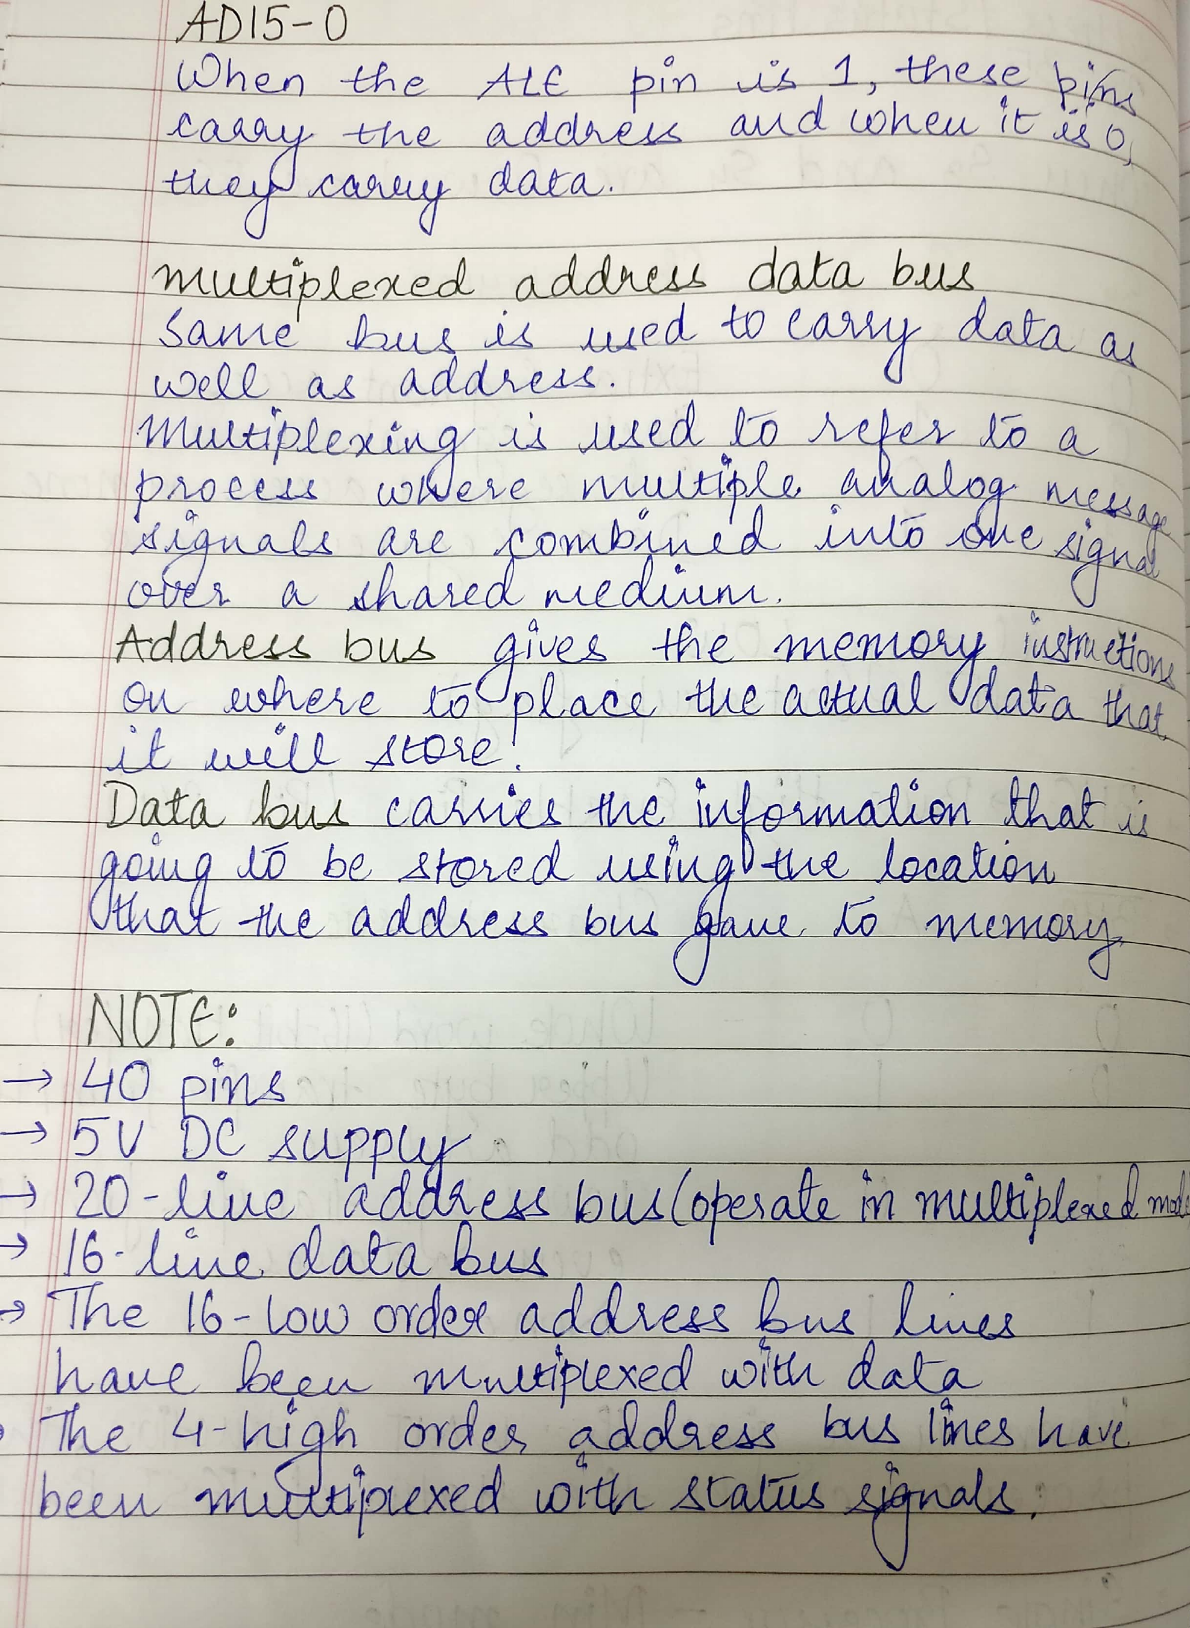 AD15-0
When the ALE pin is 1, these pins
carry the address and when it is 0,
they carry data.
Multiplexed address data bus
Same bus is used to carry data as
well as address.
Multiplexing is used to refer to a
process where multiple analog message
signals are combined into one signal
over a shared medium.
Address bus gives the memory instructions
on where to place the actual data that
it will store.
Data bus carries the information that is
going to be stored using the location
that the address bus gave to memory.
NOTE:
→ 40 pins
→ 5V DC supply
→ 20-line address bus (operate in multiplexed mode
→ 16-line data bus
→ The 16-low order address bus lines
have been multiplexed with data
The 4-high order address bus lines have
been multiplexed with status signals.